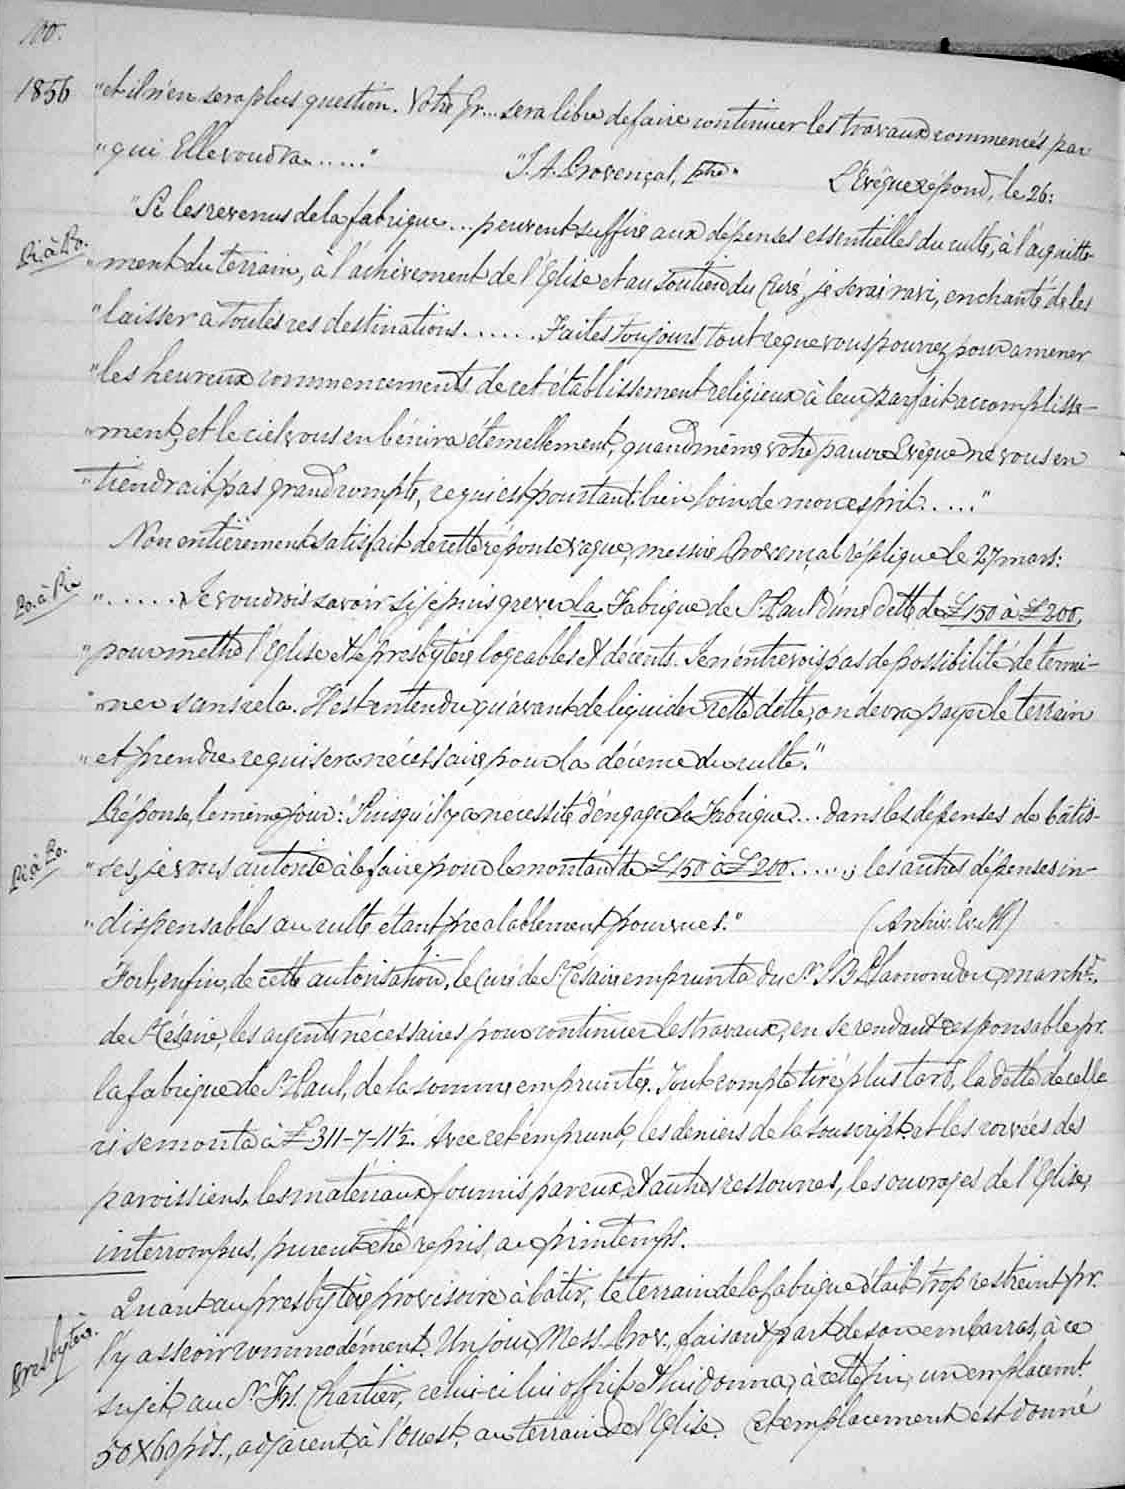 100.
1856 "et il n'en sera plus question. Votre Gr... sera libre de faire continuer les travaux commencés par
"qui Elle voudra....." "J. A. Provençal, Ptre" L'Evêque répond, le 26:
"Si les revenus de la fabrique... peuvent suffire aux dépenses essentielles du culte, à l'acquitte-
Pi. à Po. "ment du terrain, à l'achèvement de l'Eglise et au soutien du Curé, je serai ravi, enchanté de les
"laisser à toutes ces destinations....... Faites toujours tout ce que vous pourrez pour amener
"les heureux commencements de cet établissement religieux à leur parfait accomplisse-
"ment, et le ciel vous en bénira éternellement, quand même votre pauvre Evêque ne vous en
"tiendrait pas grand compte, ce qui est pourtant bien loin de mon esprit....."
Non entièrement satisfait de cette réponse vague, messire Provençal réplique le 27 mars:
Po. à Pi. "...... Je voudrois savoir si je puis grever la Fabrique de St. Paul d'une dette de £150 à £200,
"pour mettre l'Eglise et le presbytère logeables et décents. Je n'entrevois pas de possibilité de termi-
"ner sans cela. Il est entendu qu'avant de liquider cette dette, on devra payer le terrain
"et prendre ce qui sera nécessaire pour la décence du culte."
Réponse, le même jour: "Puisqu'il y a nécessité d'engager la Fabrique... dans les dépenses de bâtis-
Pi. à Po. "ses, je vous autorise à le faire pour le montant de £150 à £200.....; les autres dépenses in-
"dispensables au culte étant préalablement pourvues." (Archiv. Ev. St H)
Fort, enfin, de cette autorisation, le Curé de St Césaire emprunta du Sr. J B Plamondon, marchd.
de St Césaire, les argents nécessaires pour continuer les travaux, en se rendant responsable pr.
la fabrique de St Paul, de la somme empruntée. Tout compte tiré plus tard, la dette de celle
ci se monta à £311-7-11½. Avec cet emprunt, les deniers de la souscript. et les corvées des
paroissiens, les matériaux fournis par eux, et autres ressources, les ouvrages de l'Eglise,
interrompus, purent être repris, au printemps.
Quant au presbytère provisoire à bâtir, le terrain de la fabrique était trop restreint pr.
Presbytère. l'y asseoir commodément. Un jour, Mess. Prov., faisant part de son embarras, à ce
sujet, au Sr. Frs. Chartier, celui-ci lui offrit et lui donna, à cette fin, un emplacemt.
50 X 60 pds., adjacent, à l'Ouest, au terrain de l'Eglise. Cet emplacement est donné